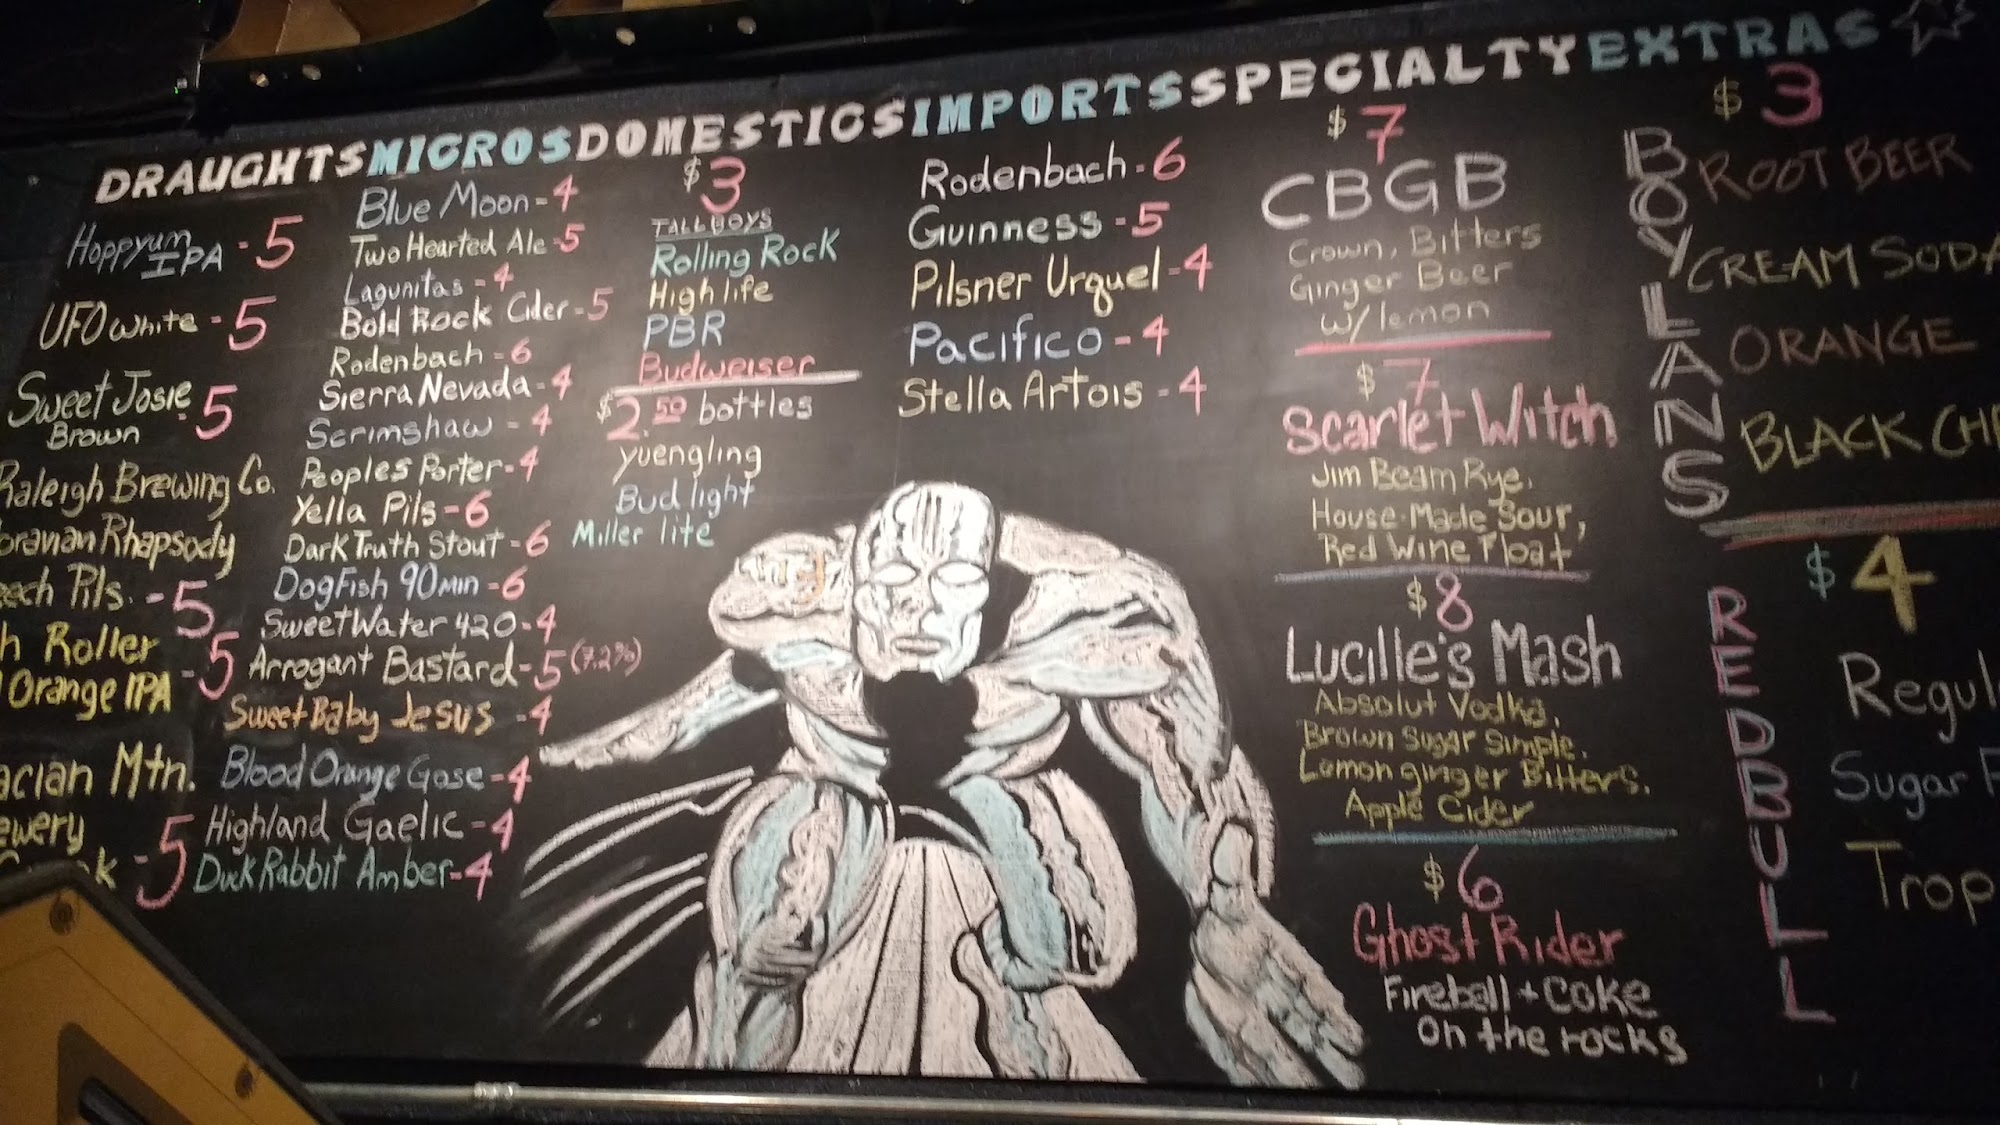 DRAUGHTS MICROS DOMESTICS IMPORTS SPECIALTY EXTRAS
Hoppyum
IPA - 5
UFO White - 5
Sweet Josie
Brown - 5
Raleigh Brewing Co.
Rhapsody
Pils. - 5
Roller
Orange IPA - 5
Mtn.
- 5
Blue Moon - 4
Two Hearted Ale - 5
Lagunitas - 4
Bold Rock Cider - 5
Rodenbach - 6
Sierra Nevada - 4
Scrimshaw - 4
Peoples Porter - 4
Yella Pils - 6
Dark Truth Stout - 6
DogFish 90 Min - 6
SweetWater 420 - 4
Arrogant Bastard - 5 (7.2%)
Sweet Baby Jesus - 4
Blood Orange Gose - 4
Highland Gaelic - 4
Duck Rabbit Amber - 4
$3
TALLBOYS
Rolling Rock
High life
PBR
Budweiser
$2.50 bottles
yuengling
Bud light
Miller lite
Rodenbach - 6
Guinness - 5
Pilsner Urquel - 4
Pacifico - 4
Stella Artois - 4
$7
CBGB
Crown, Bitters
Ginger Beer
w/ lemon
$7
Scarlet Witch
Jim Beam Rye,
House-Made Sour,
Red Wine Float
$8
Lucille's Mash
Absolut Vodka,
Brown Sugar Simple,
Lemon ginger Bitters,
Apple Cider
$6
Ghost Rider
Fireball + Coke
on the rocks
$3
BOYLANS
ROOT BEER
CREAM SODA
ORANGE
BLACK
$4
REDBULL
Sugar